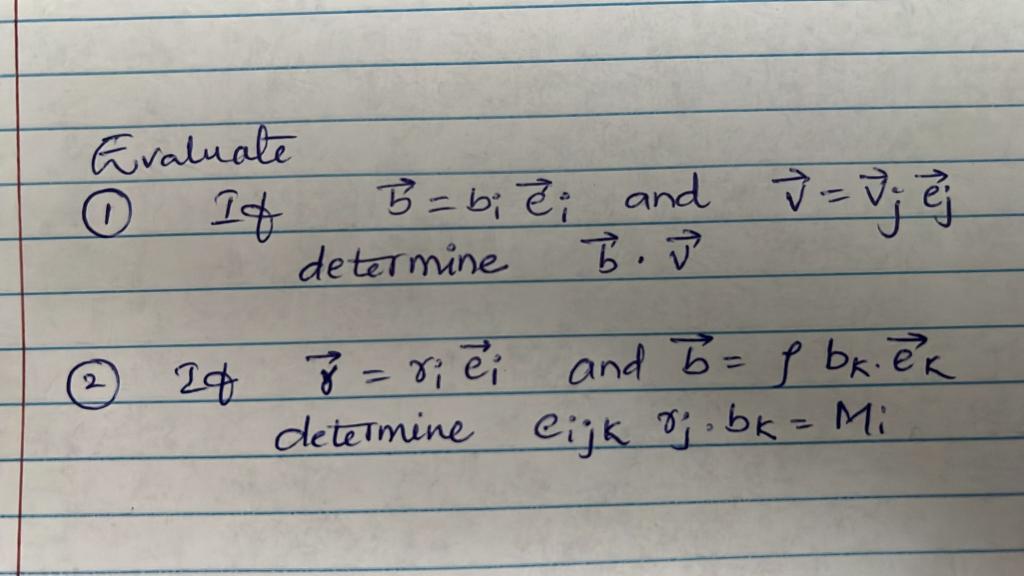 Evaluate
① If b⃗ = bᵢ e⃗ᵢ and v⃗ = v⃗ⱼ e⃗ⱼ
determine b⃗ . v⃗
② If r⃗ = rᵢ e⃗ᵢ and b⃗ = ρ bₖ. e⃗ₖ
determine eᵢⱼₖ rⱼ . bₖ = Mᵢ